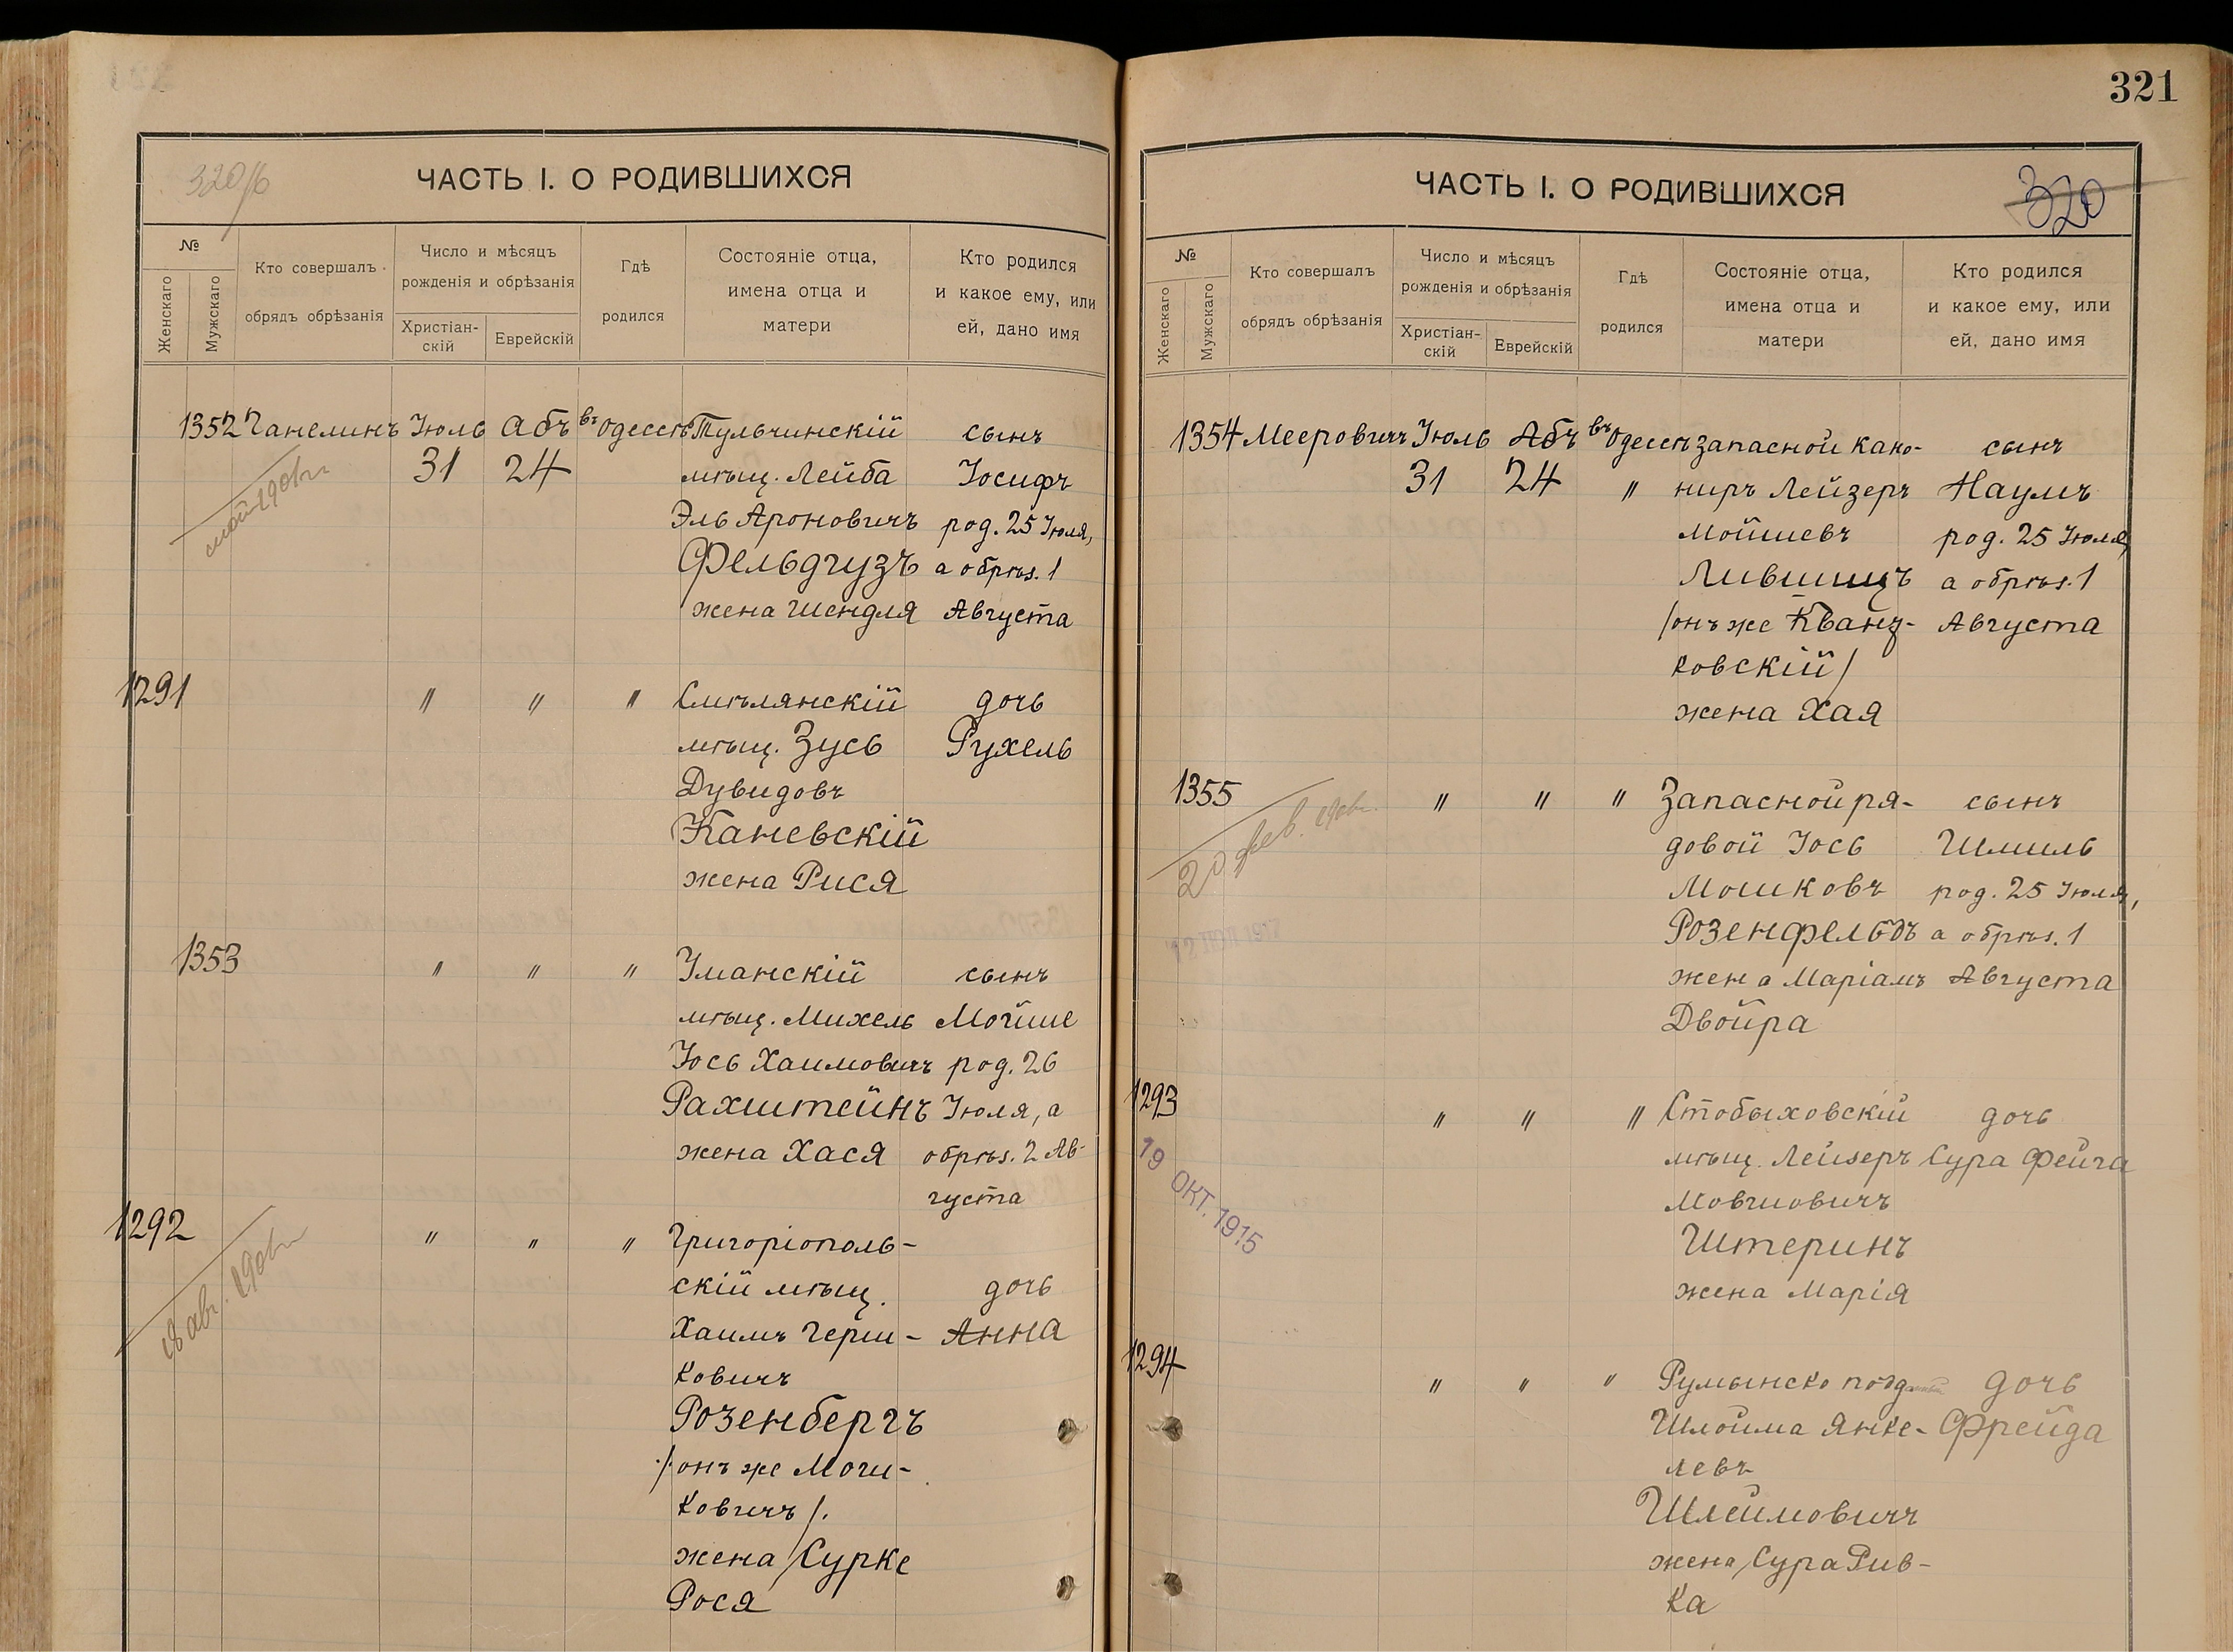 321
320/б
ЧАСТЬ I. О РОДИВШИХСЯ
№
Женскаго
Мужскаго
Кто совершалъ
обрядъ обрѣзанія
Число и мѣсяцъ
рожденія и обрѣзанія
Христіан-
скій
Еврейскій
Гдѣ
родился
Состояніе отца,
имена отца и
матери
Кто родился
и какое ему, или
ей, дано имя
1352 Ганелинъ Іюль Абъ въ Одессѣ Тульчинскій сынъ
31 24 мѣщ. Лейба Іосифъ
Эль Ароновичъ род. 25 Іюля,
Фельдгузъ а обрѣз. 1
жена Шендля Августа
1291 " " " Смѣлянскій дочь
мѣщ. Зусь Рухель
Дувидовъ
Каневскій
жена Рися
1353 " " " Уманскій сынъ
мѣщ. Михель Мойше
Іось Хаимовичъ род. 26
Рахштейнъ Іюля, а
жена Хася обрѣз. 2 Ав-
густа
1292 " " " Григоріополь-
скій мѣщ. дочь
18 авг.
Хаимъ Герш- Анна
ковичъ
Розенбергъ
/онъ же Моги-
ковичъ/.
жена Сурке
Рося
ЧАСТЬ I. О РОДИВШИХСЯ
320
№
Женскаго
Мужскаго
Кто совершалъ
обрядъ обрѣзанія
Число и мѣсяцъ
рожденія и обрѣзанія
Христіан-
скій
Еврейскій
Гдѣ
родился
Состояніе отца,
имена отца и
матери
Кто родился
и какое ему, или
ей, дано имя
1354 Мееровичъ Іюль Абъ въ Одессѣ запасной кано- сынъ
31 24 " ниръ Лейзеръ Наумъ
Мойшевъ род. 25 Іюля,
Лившицъ а обрѣз. 1
/онъ же Кванц- Августа
ковскій/
жена Хая
1355 " " " Запасной ря- сынъ
20 фев.
довой Іось Шмиль
Мошковъ род. 25 Іюля,
Розенфельдъ а обрѣз. 1
жена Маріамъ Августа
Двойра
1293 " " " Стобыховскій дочь
19 ОКТ. 1915
мѣщ. Лейзеръ Сура Фейга
Мовшовичъ
Штеринъ
жена Марія
1294 " " " Румынско подд дочь
Шлойма Янке- Фрейда
левъ
Шлеймовичъ
жена Сура Рив-
ка